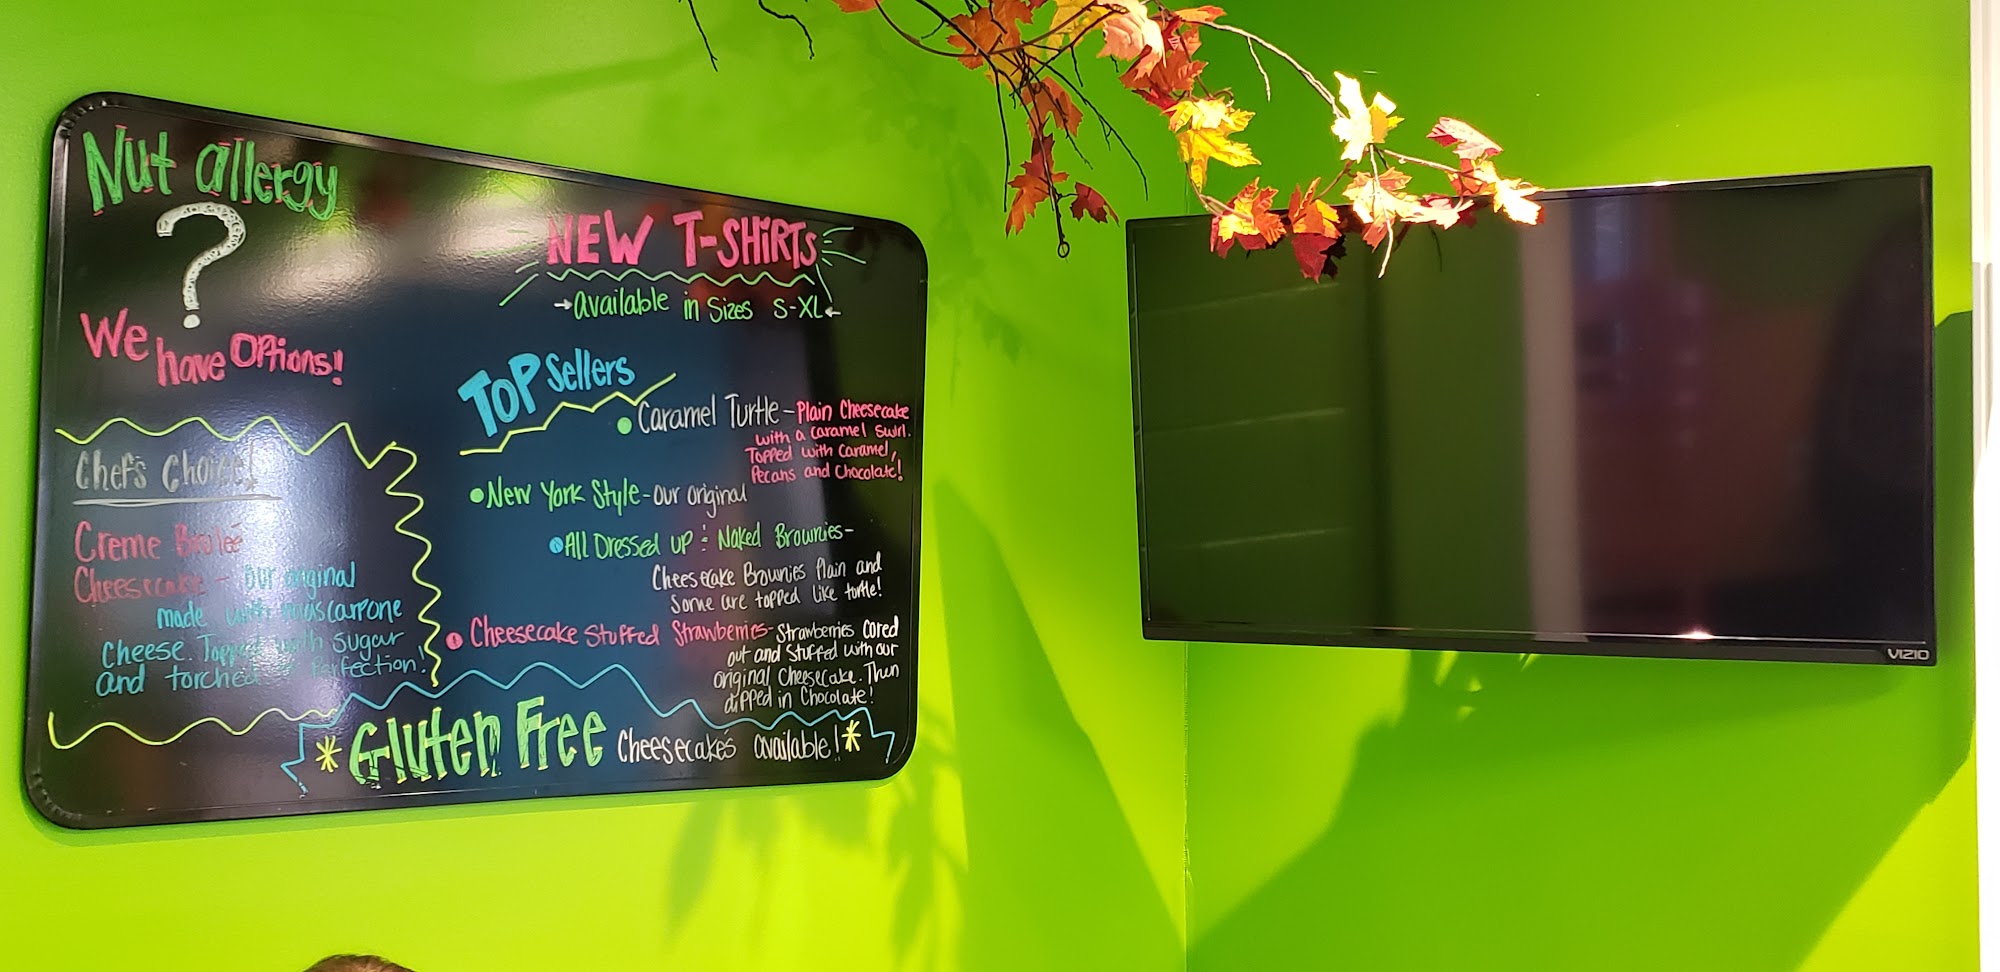 Nut allergy
?
We have Options!
Chef's Choice!
Creme Brulee
Cheesecake - our original
made with mascarpone
Cheese. Topped with sugar
and torched to Perfection!
NEW T-SHiRTs
→available in Sizes S-XL←
TOP Sellers
•Caramel Turtle-Plain Cheesecake
with a caramel Swirl.
Topped with Caramel,
Pecans and Chocolate!
•New York Style-our original
•All Dressed up : Naked Brownies-
Cheesecake Brownies Plain and
Some are topped like turtle!
•Cheesecake Stuffed Strawberries-Strawberries Cored
out and Stuffed with our
original Cheesecake. Then
dipped in Chocolate!
*Gluten Free Cheesecakes available!*
VIZIO